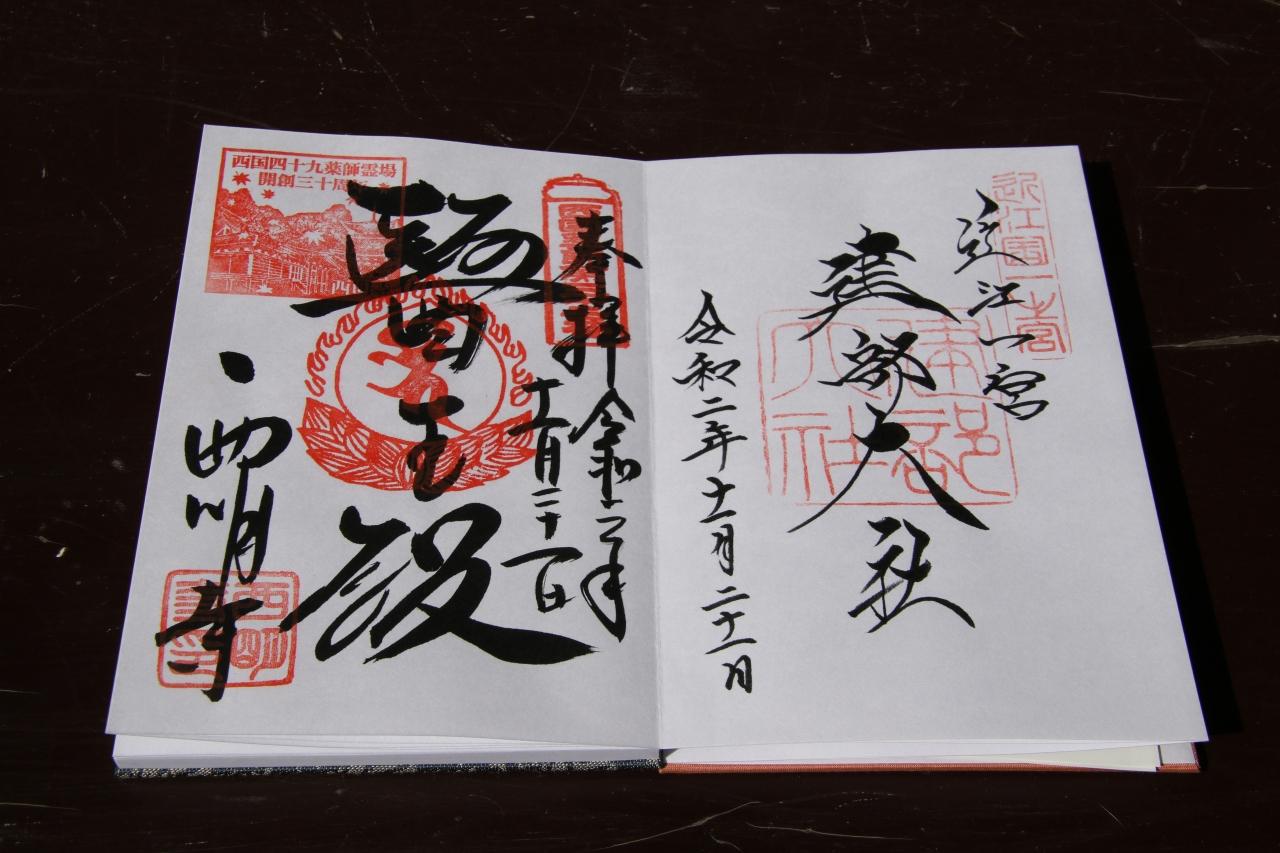 近江國一之宮
近江一宮
建部大社
建部大社
令和二年十一月二十一日
奉拝
令和二年
十一月二十一日
醫王殿
西国四十九薬師霊場
開創三十周年
西明寺
西明